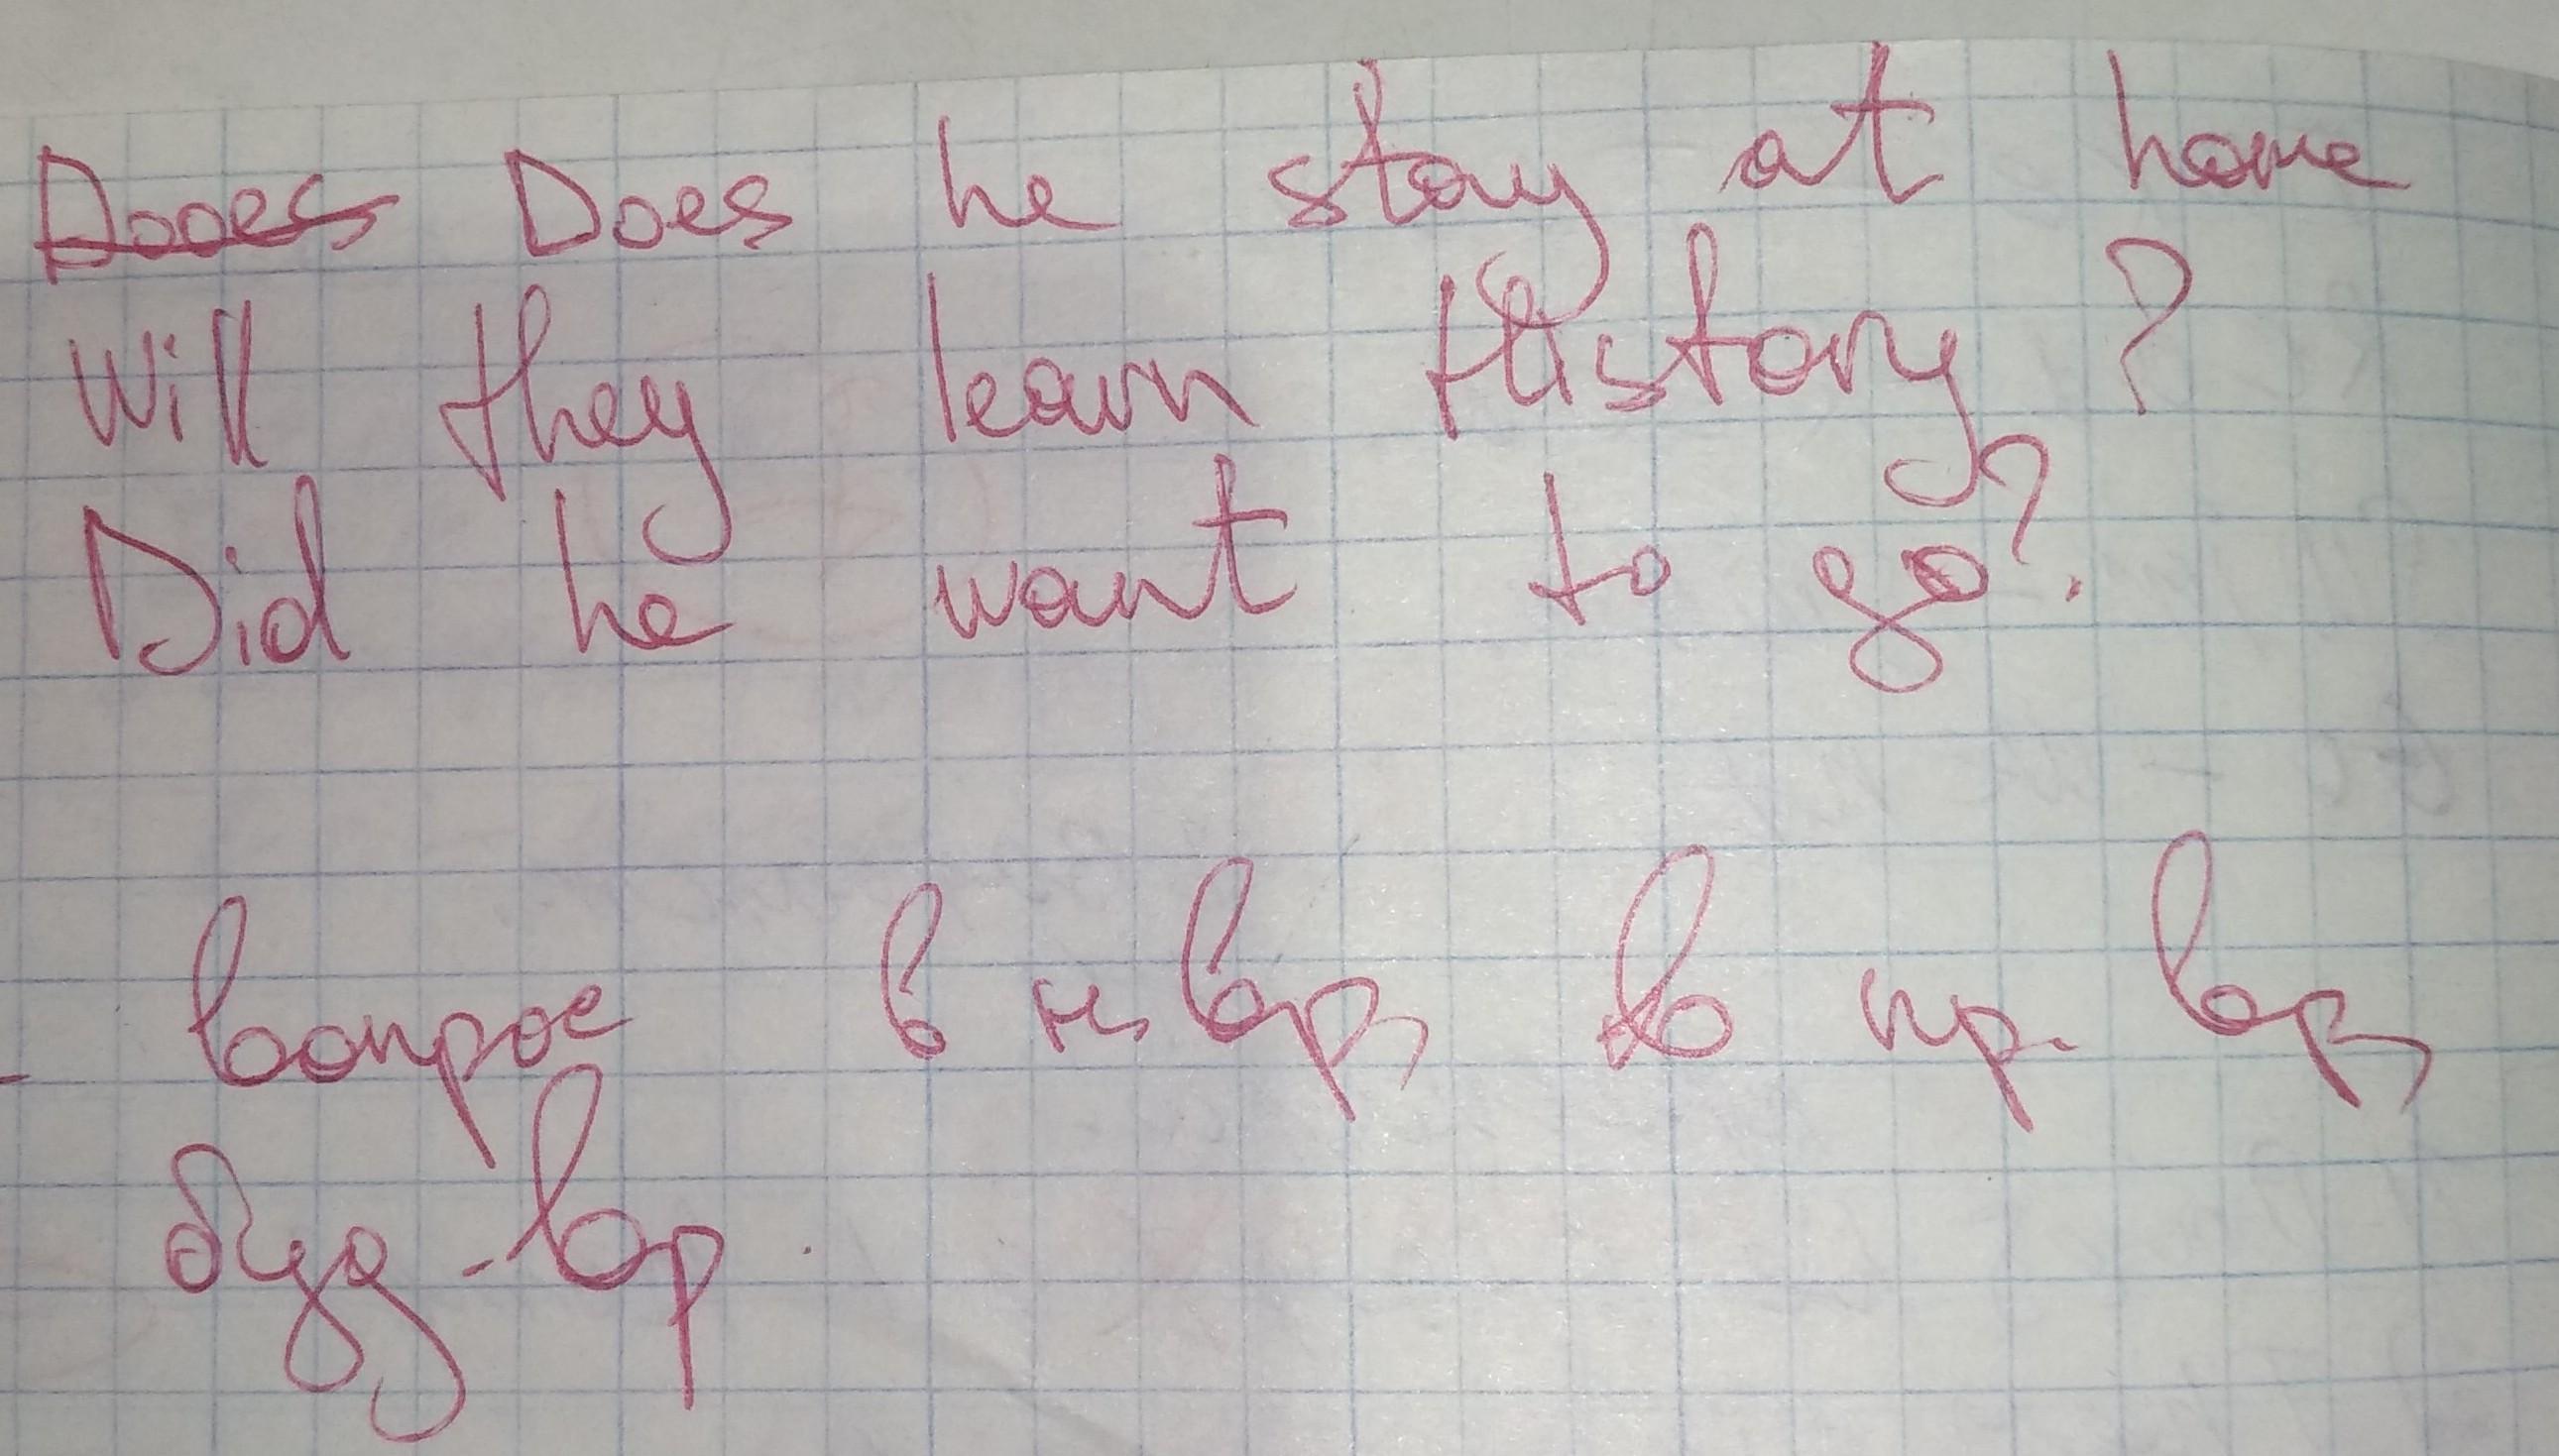 Dooes Does he stay at home
Will they learn History ?
Did he want to go?
- вопрос в н вр, в пр. вр,
буд - вр.